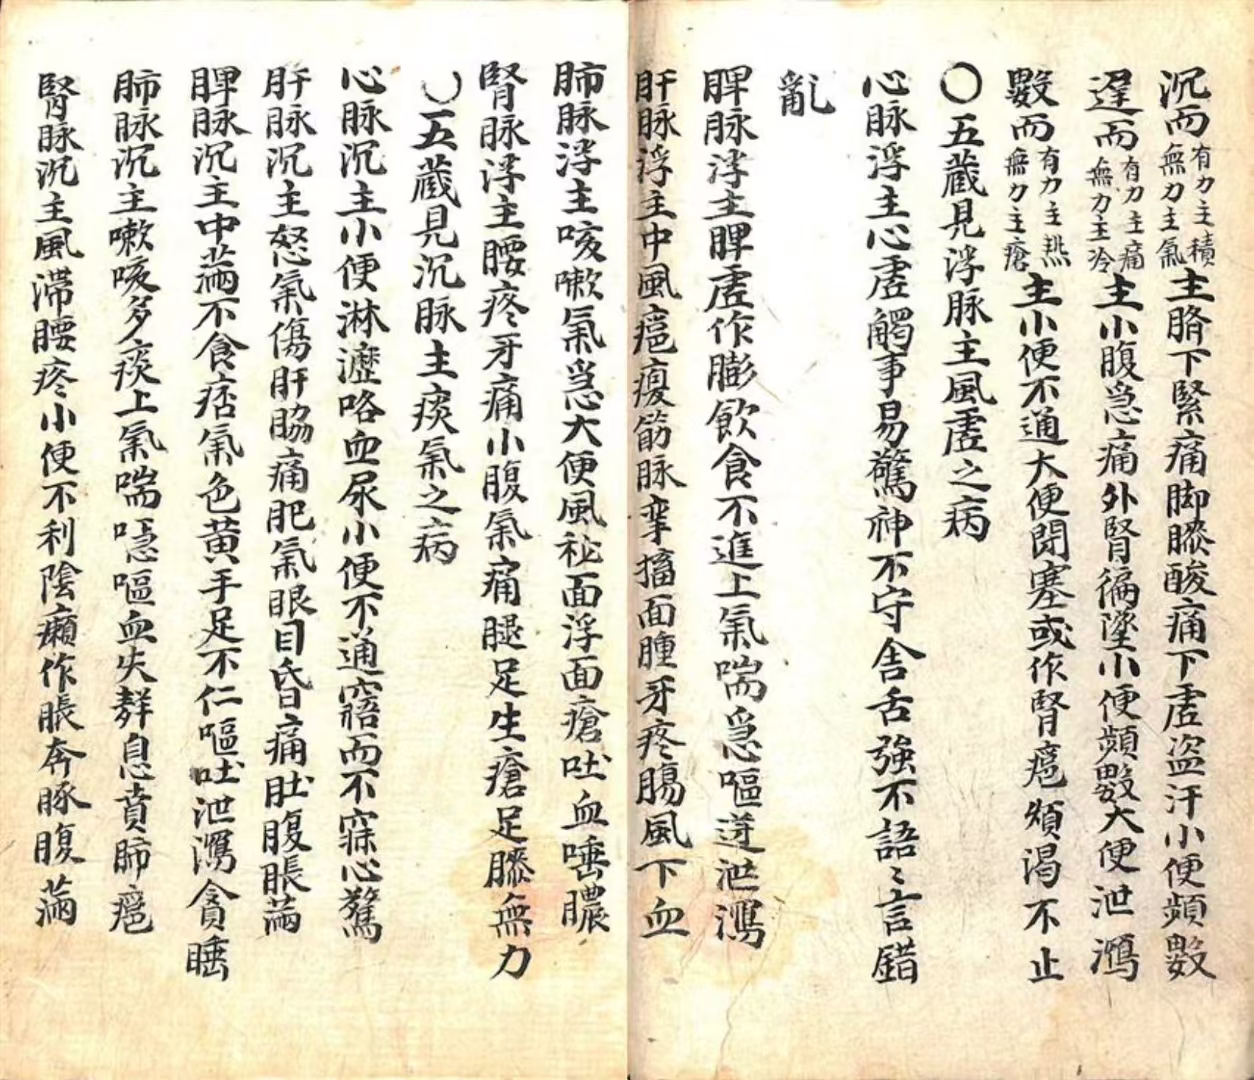 沉而有力主積無力主氣主臍下緊痛脚膝酸痛下虛盗汗小便頻數
遲而有力主痛無力主冷主小腹急痛外腎偏墜小便頻數大便泄瀉
數而有力主熱無力主瘡主小便不通大便閉塞或作腎癰煩渴不止
〇五蔵見浮脉主風虛之病
心脉浮主心虛觸事易驚神不守舍舌強不語〻言錯
亂
脾脉浮主脾虛作膨飲食不進上氣喘急嘔逆泄瀉
肝脉浮主中風癱瘓筋脉牽搐面腫牙疼腸風下血
肺脉浮主咳嗽氣急大便風秘面浮面瘡吐血唾膿
腎脉浮主腰疼牙痛小腹氣痛腿足生瘡足膝無力
〇五蔵見沉脉主痰氣之病
心脉沉主小便淋瀝咯血尿小便不通寤而不寐心驚
肝脉沉主怒氣傷肝脇痛肥氣眼目昏痛肚腹脹满
脾脉沉主中满不食痞氣色黄手足不仁嘔吐泄瀉貪睡
肺脉沉主嗽咳多痰上氣喘嘔血失聲息賁肺癰
腎脉沉主風滞腰疼小便不利陰癩作脹奔豚腹满